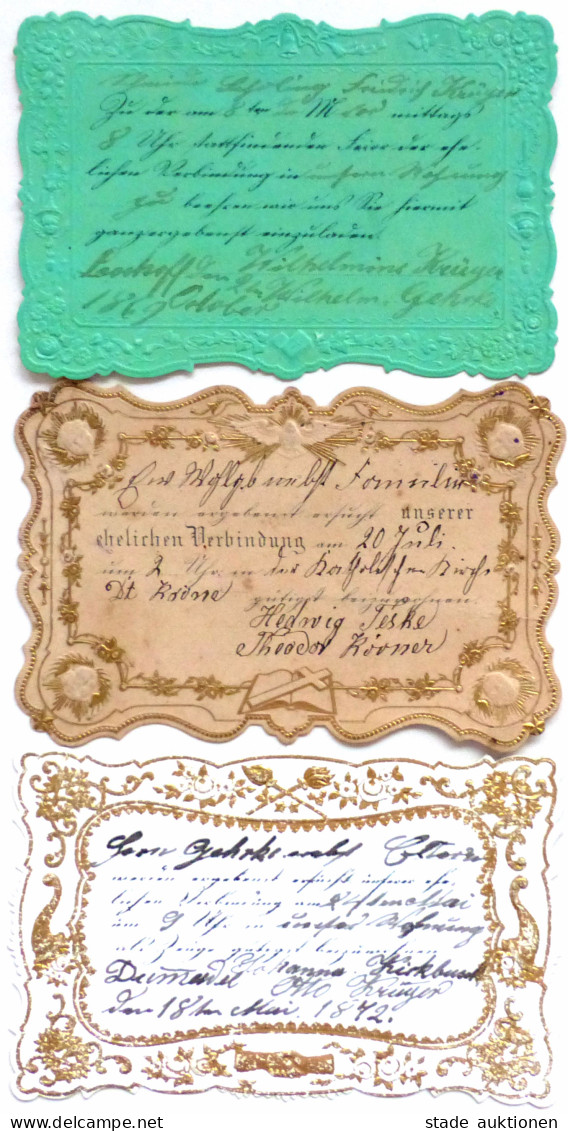 Friedrich Krüger
Zu der am 8 ten mittags
8 Uhr stattfindenden Feier der ehe-
lichen Verbindung in unserer Wohnung
beehren wir uns Sie hiermit
ganz ergebenst einzuladen.
den Wilhelmine Krüger
Wilhelm Gehrke
1869 October
Ew Wohlgb nebst Familie
werden ergebenst ersucht unserer
ehelichen Verbindung am 20 Juli.
um 2 Uhr in der Katholischen Kirche
Dt Krone gütigst beizuwohnen.
Hedwig Teske
Theodor Körner
Herrn Gehrke nebst
werden ergebenst ersucht unserer ehe-
lichen Verbindung am
um 9 Uhr in unser Wohnung
als Zeuge gütigst beizuwohnen
Johanna
Otto Krüger
den 18ten Mai. 1872.
Delcampe.net
stade auktionen